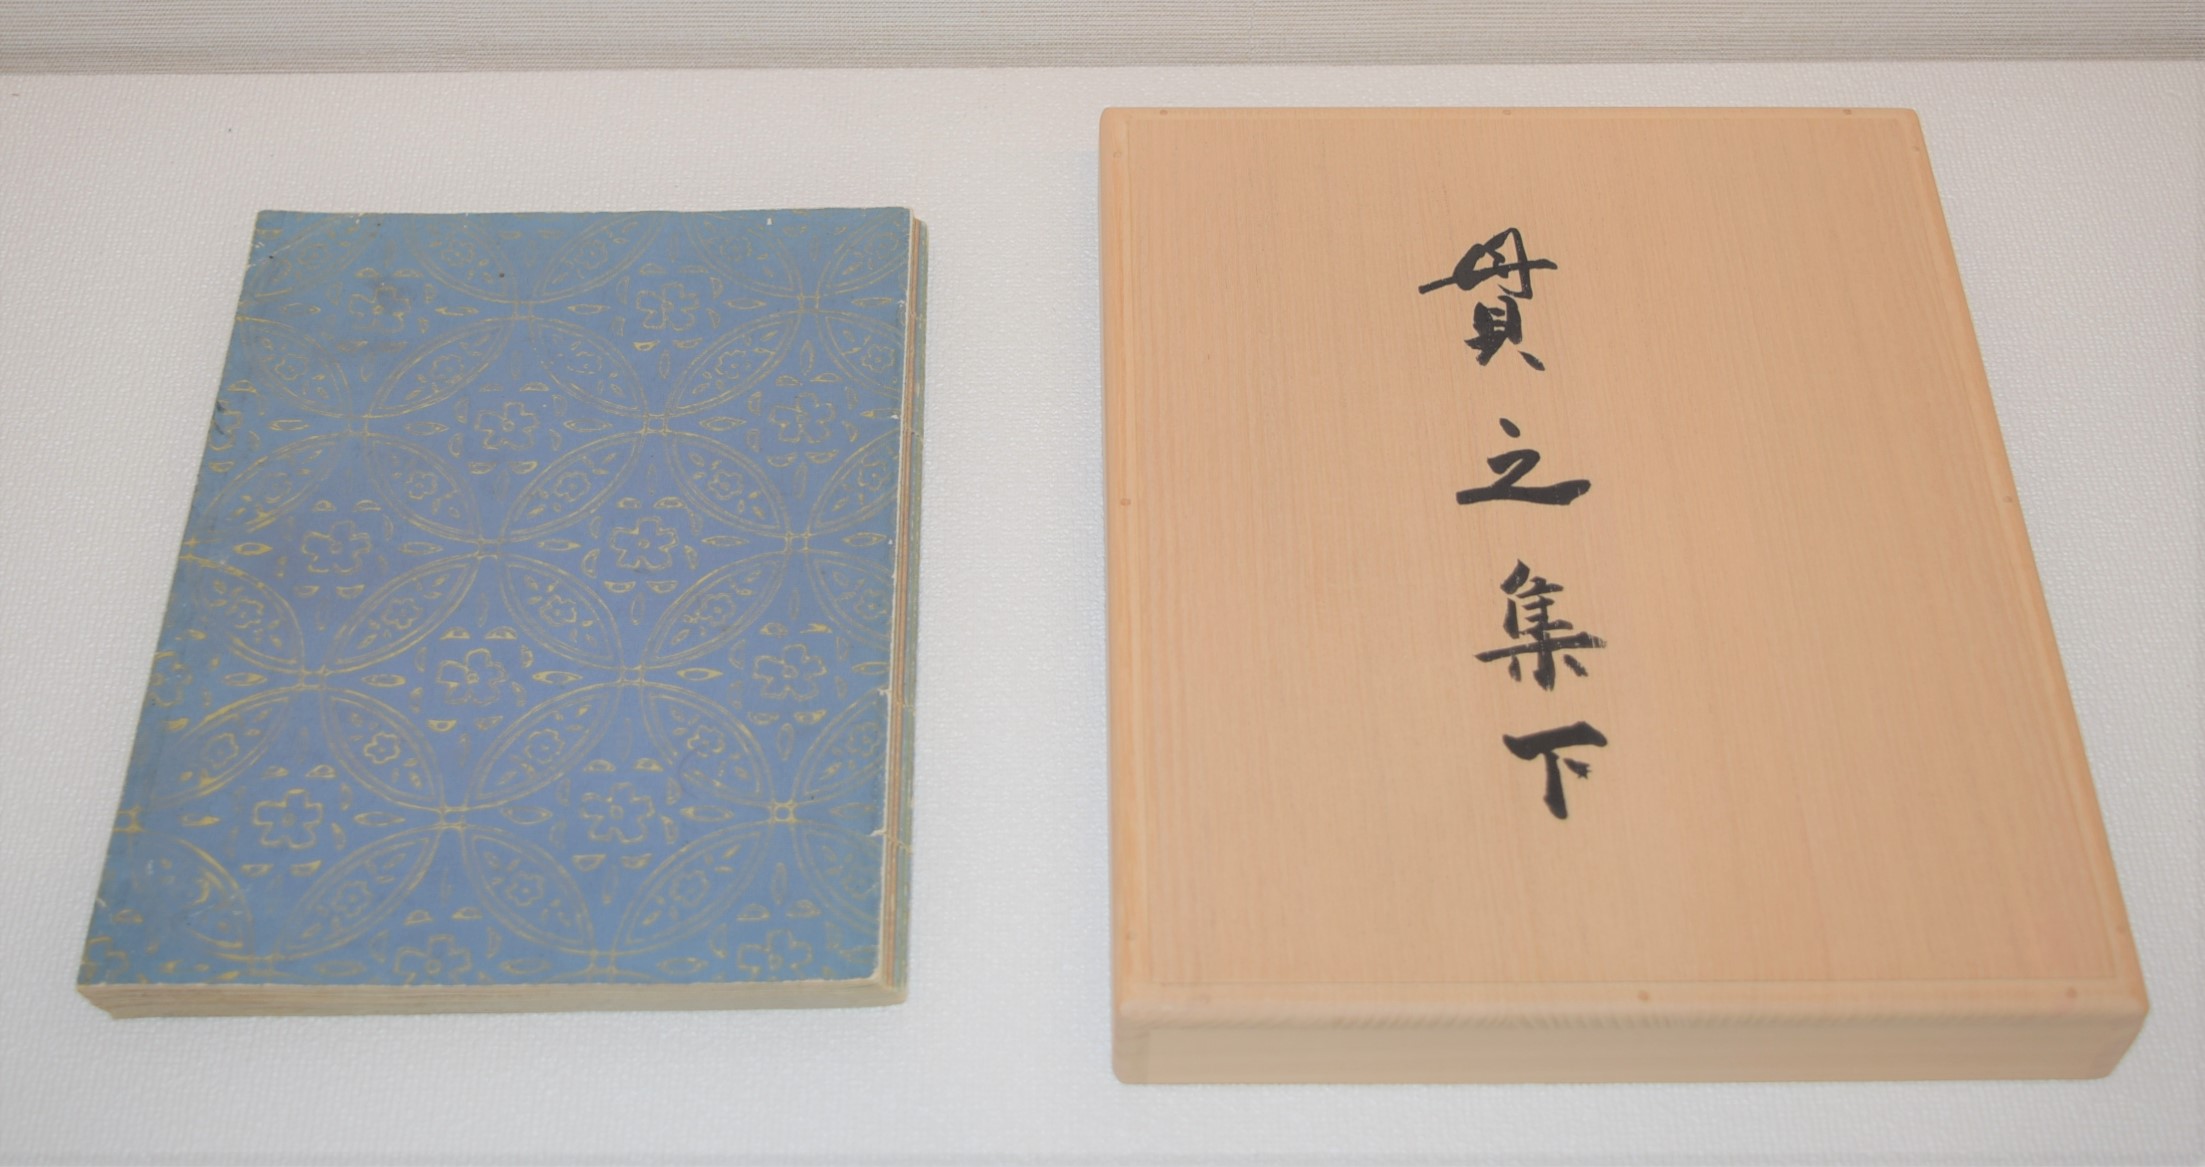 貫之集下